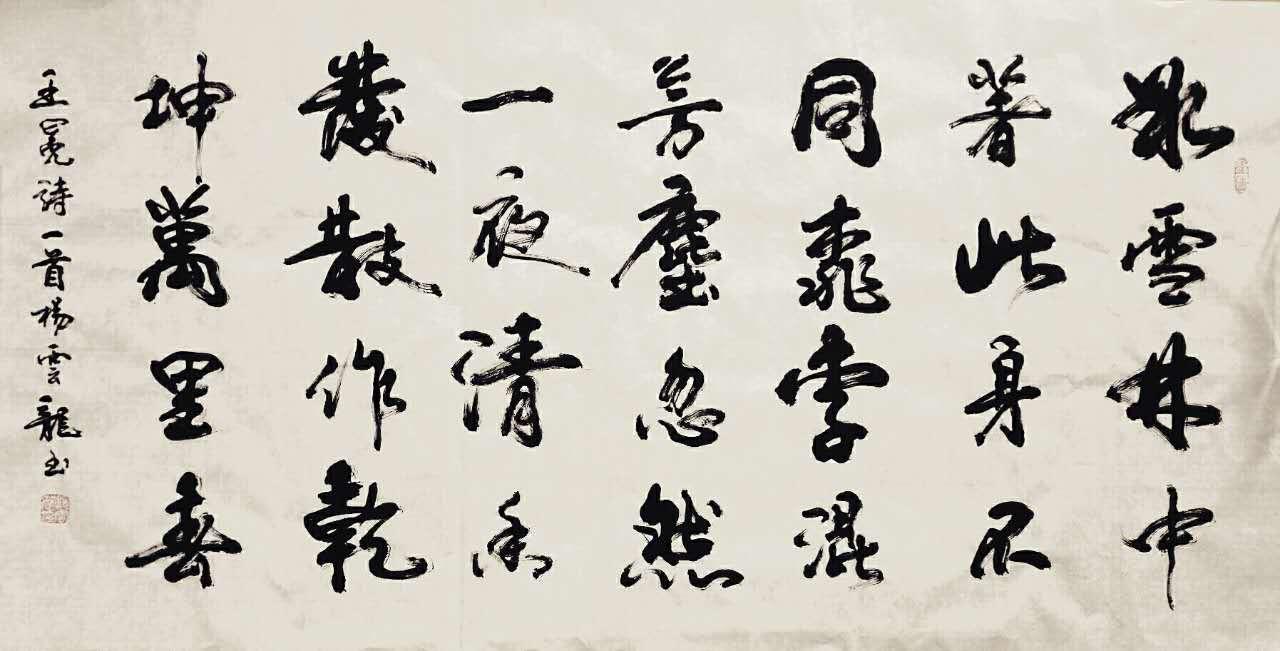 冰雪林中
著此身不
同桃李混
芳塵忽然
一夜清香
發散作乾
坤萬里春
王冕詩一首楊雲龍书